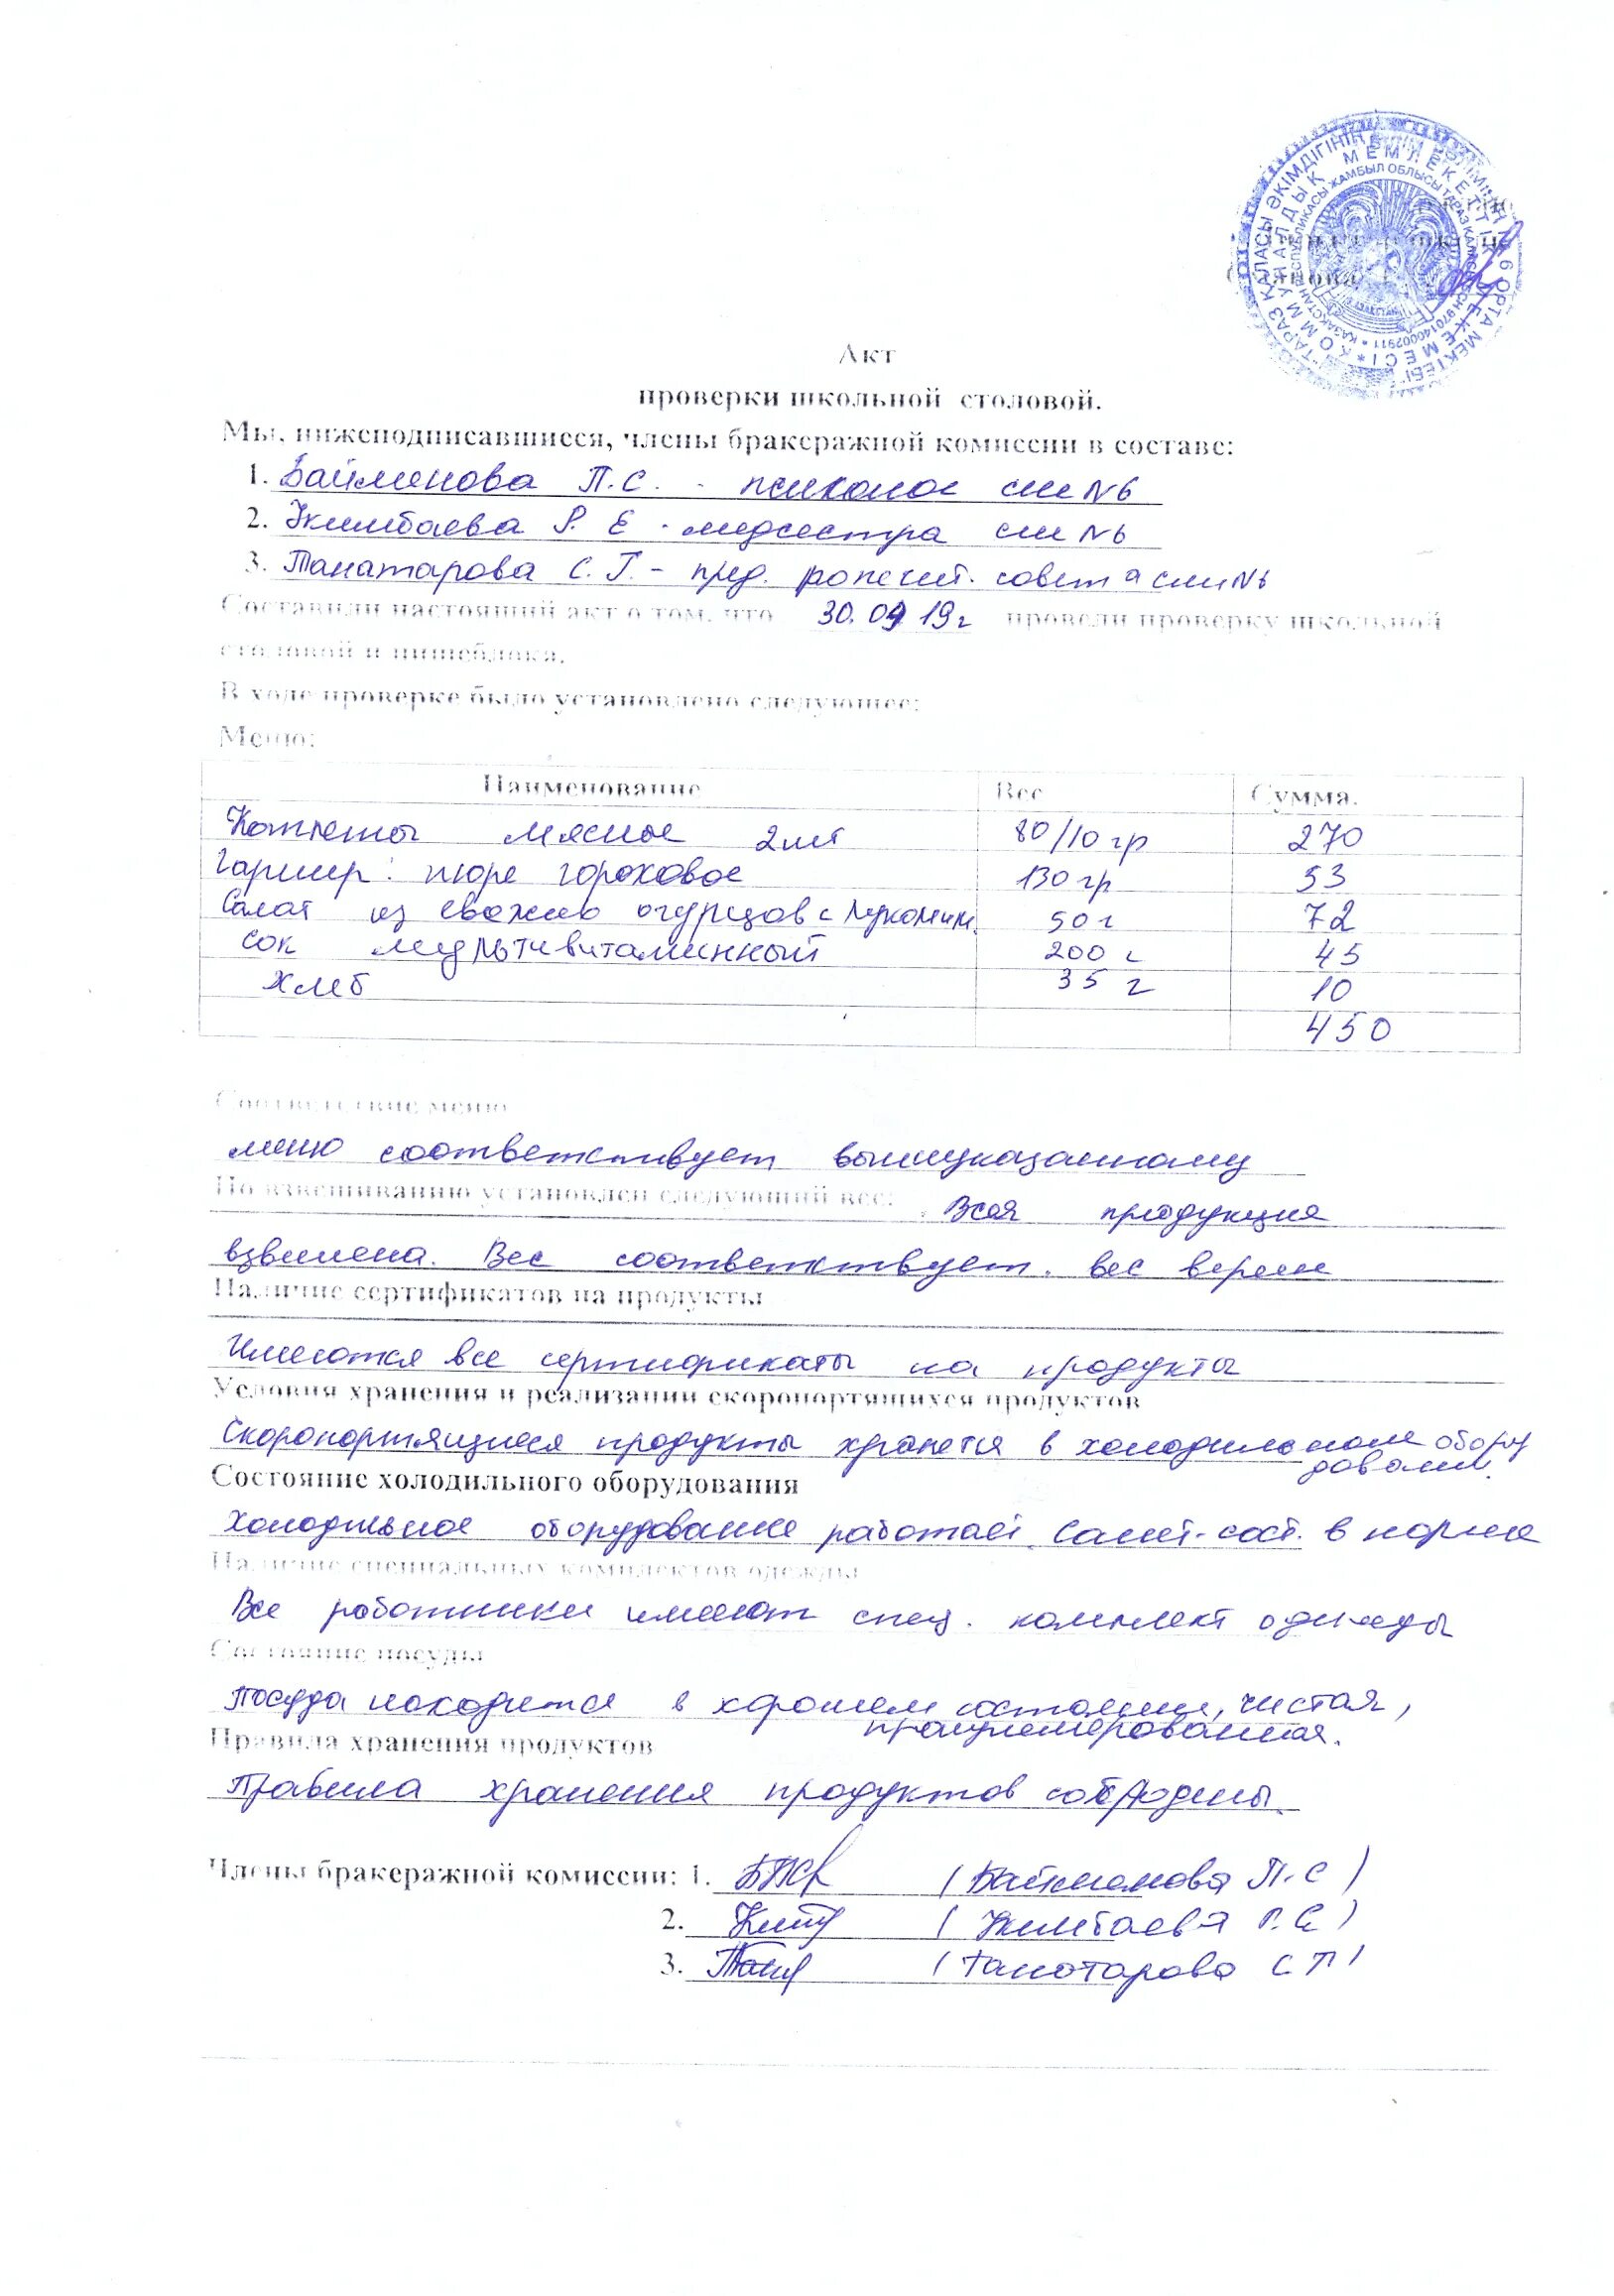 Акт
проверки школьной столовой.
Мы, нижеподписавшиеся, члены бракеражной комиссии в составе:
1. Байменова П.С. - психолог сш №6
2. Укимбаева Р. Е - медсестра сш №6
3. Танатарова С.Г. - пред. попечит. совета сш №6
Составили настоящий акт о том, что 30.09 19г провели проверку школьной
столовой и пищеблока.
В ходе проверке было установлено следующее:
Меню:
Наименование Вес Сумма.
Котлеты мясные 2шт 80/10 гр 270
Гарнир: пюре гороховое 130 гр 53
Салат из свежих огурцов с луком 50 г 72
Сок мультивитаминный 200 г 45
Хлеб 35 г 10
450
Соответствие меню
меню соответствует вышеуказанному
По взвешиванию установлен следующий вес: Вся продукция
взвешена. Вес соответствует. вес верен
Наличие сертификатов на продукты
Имеются все сертификаты на продукты
Условия хранения и реализации скоропортящихся продуктов
Скоропортящиеся продукты хранятся в холодильном обору
довании.
Состояние холодильного оборудования
Холодильное оборудование работает. Санит-сост. в норме
Наличие специальных комплектов одежды
Все работники имеют спец. комплект одежды
Состояние посуды
Посуда находится в хорошем состоянии, чистая,
промаркерованная.
Правила хранения продуктов
Правила хранения продуктов соблюдены.
Члены бракеражной комиссии: 1. (Байменова П.С)
2. (Укимбаева Р.Е)
3. (Танатарова С Г)